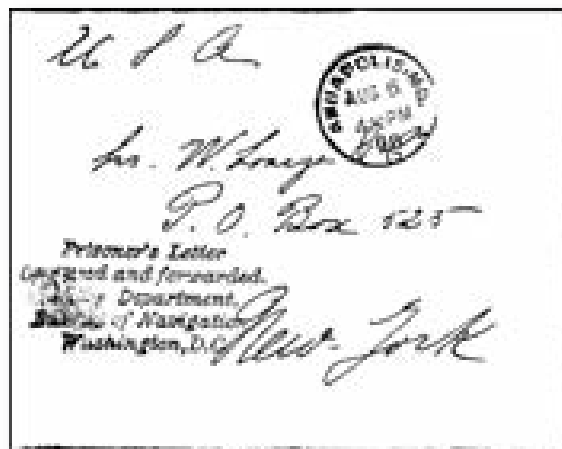 U S A
ANNAPOLIS. MD.
AUG 6
4 PM
W.
P. O. Box 525
Prisoner's Letter
and forwarded.
Department,
Bureau of Navigation
Washington, D.C.
New York